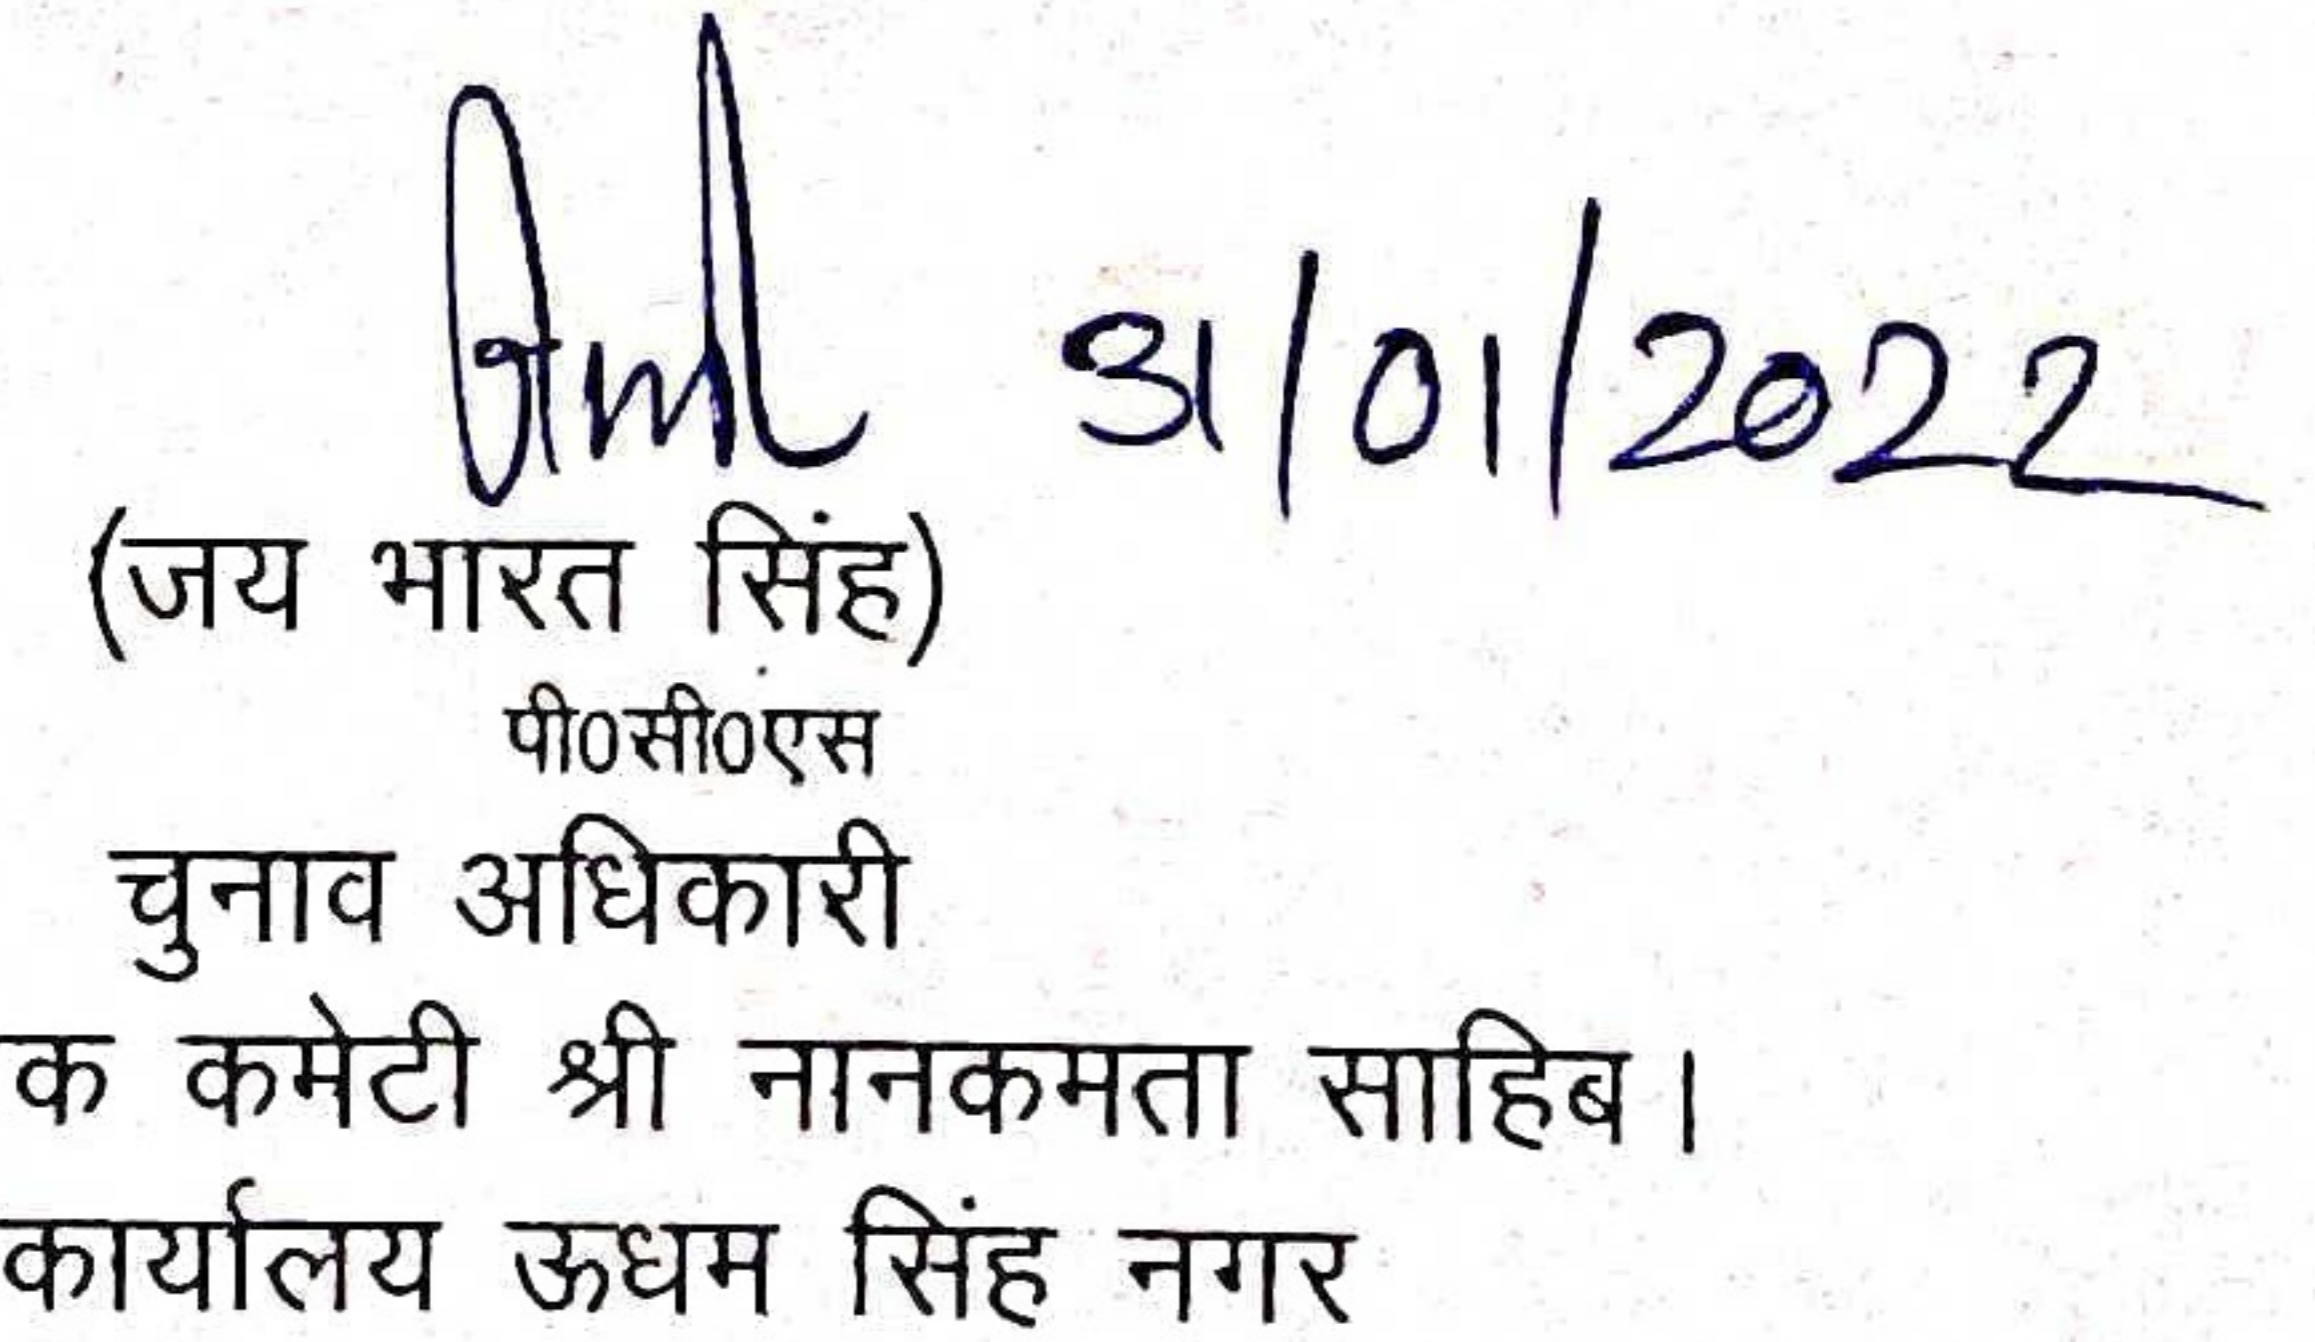 31/01/2022
(जय भारत सिंह)
पी0सी0एस
चुनाव अधिकारी
क कमेटी श्री नानकमता साहिब।
कार्यालय ऊधम सिंह नगर